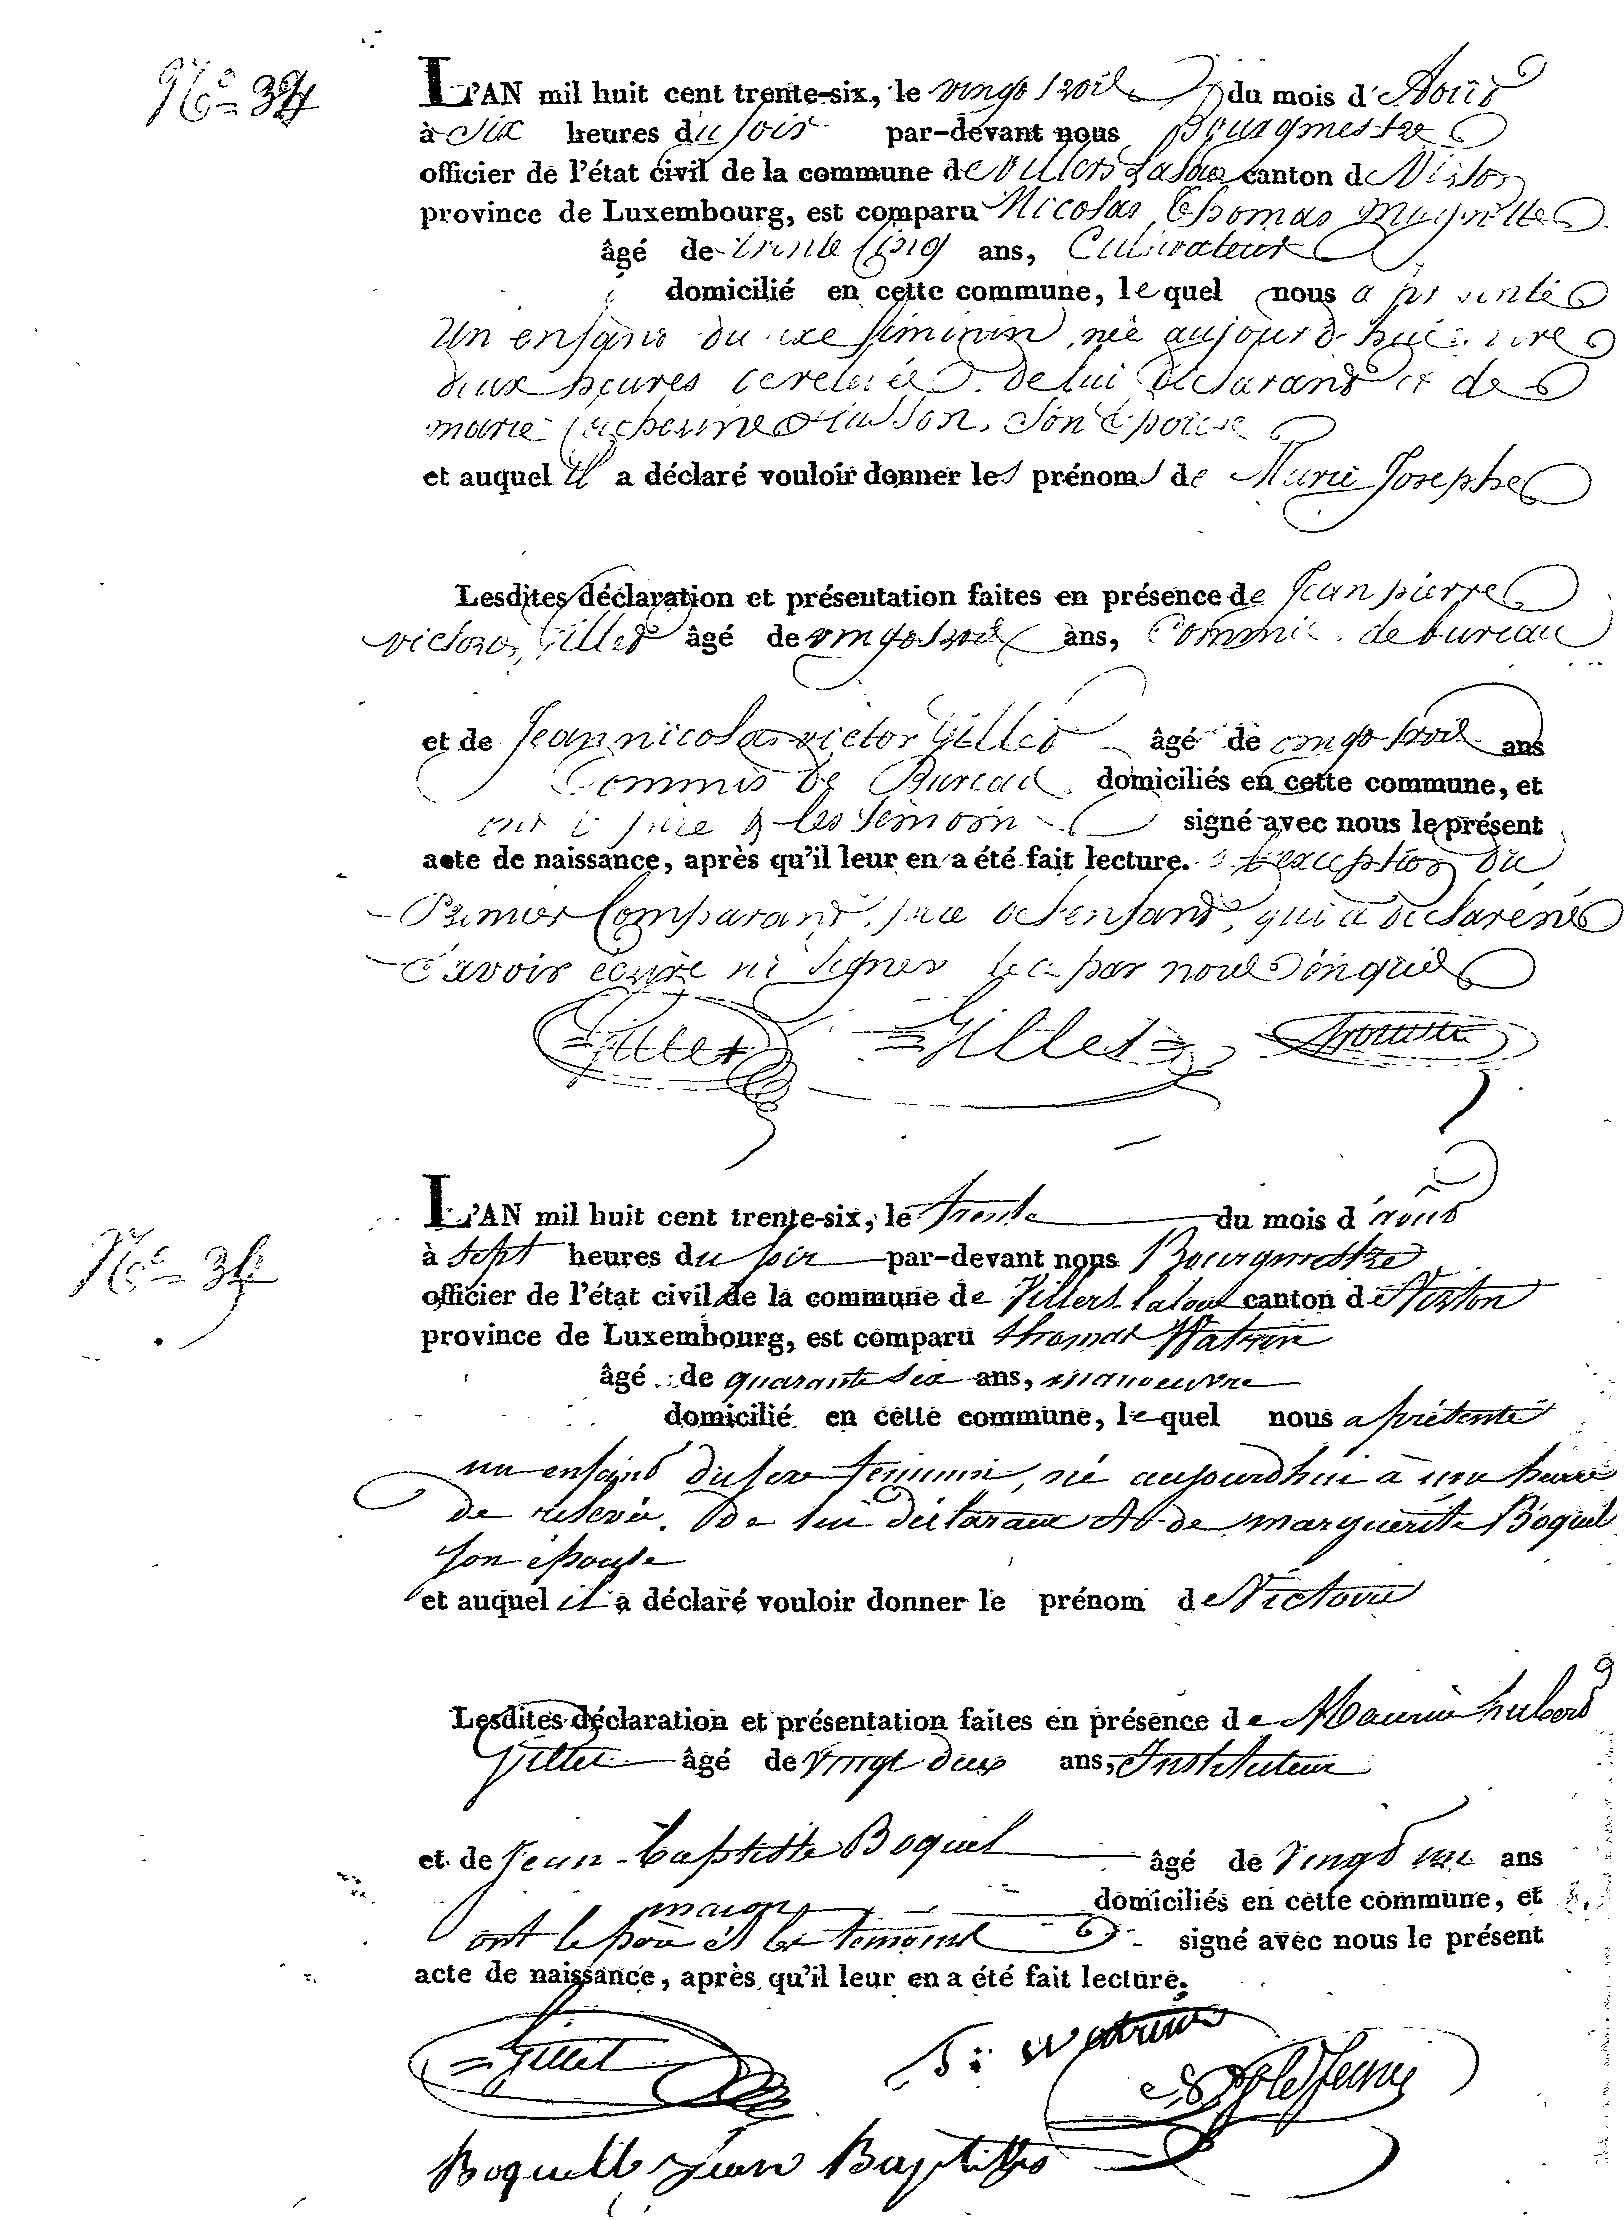 N.° 34
L'AN mil huit cent trente-six, le vingt trois du mois d'Août
à Six heures du soir par-devant nous Bourgmestre
officier de l'état civil de la commune de Villers Laloue canton de Virton
province de Luxembourg, est comparu Nicolas Thomas
âgé de trente cinq ans, Cultivateur
domicilié en cette commune, lequel nous a présenté
Un enfant du sexe féminin, née aujourd'hui
deux heures de relevée. de lui déclarant et de
marie Catherine Son Epouse
et auquel il a déclaré vouloir donner les prénoms de Marie Josephe
Lesdites déclaration et présentation faites en présence de Jean pierre
victor Gillet âgé de vingt trois ans, Commis de bureau
et de Jean nicolas victor Gillet âgé de vingt trois ans
Commis de Bureau domiciliés en cette commune, et
ont le père & les témoin signé avec nous le présent
acte de naissance, après qu'il leur en a été fait lecture. à l'exception du
Premier Comparant, père de l'enfant, qui a déclaré ne
Savoir écrire ni signer
Gillet Gillet
N.° 35
L'AN mil huit cent trente-six, le trente du mois d'août
à sept heures du soir par-devant nous Bourgmestre
officier de l'état civil de la commune de Villers-laloue canton de Virton
province de Luxembourg, est comparu thomas Watrin
âgé de quarante six ans, manoeuvre
domicilié en cette commune, lequel nous a présenté
un enfant du sexe féminin, né aujourdhui à une heure
de relevée. De lui déclarant et de marguerite Boquel
son épouse
et auquel il a déclaré vouloir donner le prénom de Victoire
Lesdites déclaration et présentation faites en présence de Maurice hubert
Gillet âgé de vingt deux ans, Instituteur
et de Jean-baptiste Boquel âgé de vingt un ans
maçon domiciliés en cette commune, et
ont le père et les témoins signé avec nous le présent
acte de naissance, après qu'il leur en a été fait lecture.
Gillet T: Watrin
Boquelle jean Baptiste